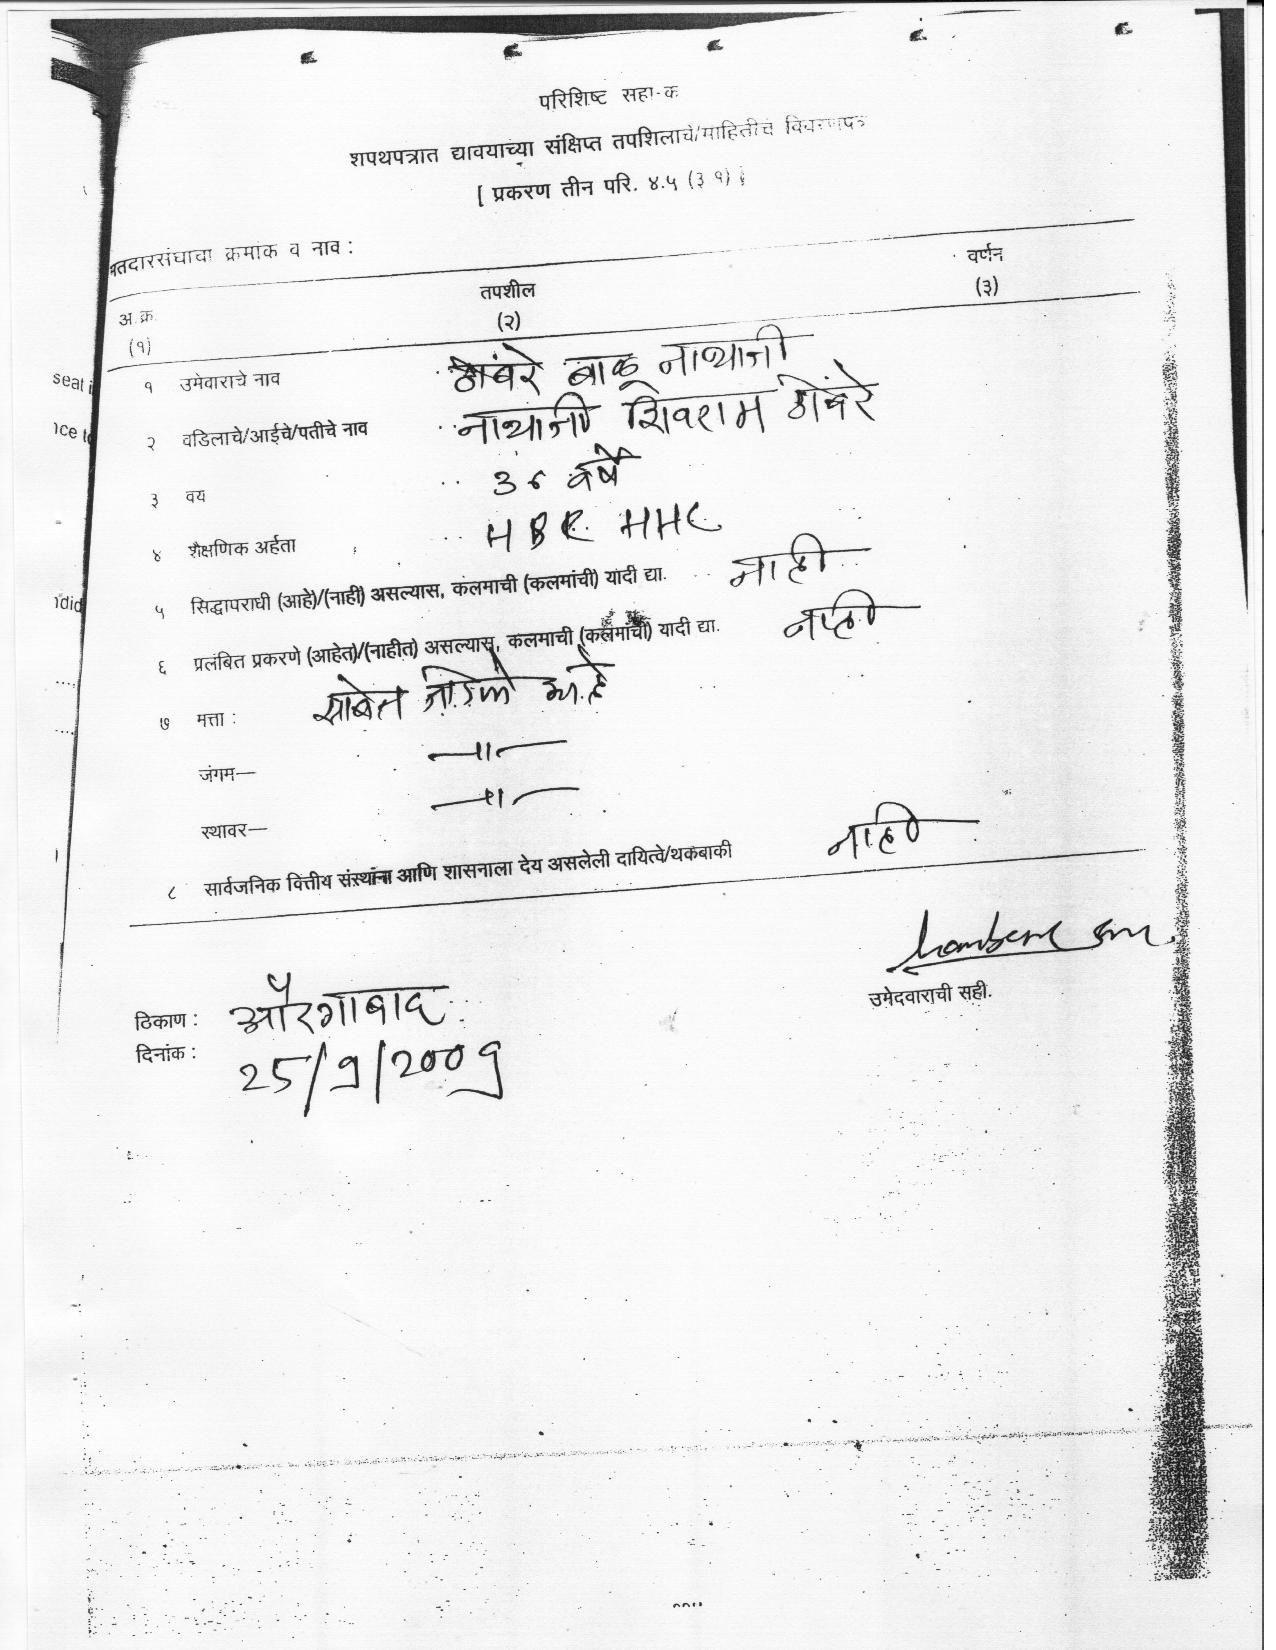 परिशिष्ट सहा-क
शपथपत्रात द्यावयाच्या संक्षिप्त तपशिलाचे/माहितीचे विवरणपत्र
[ प्रकरण तीन परि. ४.५ (३ १) ]
मतदारसंघाचा क्रमांक व नाव :
अ.क्र. तपशील वर्णन
(१) (२) (३)
१ उमेवाराचे नाव ठोंबरे बाळू नाथाजी
२ वडिलाचे/आईचे/पतीचे नाव नाथाजी शिवराम ठोंबरे
३ वय ३६ वर्षे
४ शैक्षणिक अर्हता
५ सिद्धापराधी (आहे)/(नाही) असल्यास, कलमाची (कलमांची) यादी द्या. नाही
६ प्रलंबित प्रकरणे (आहेत)/(नाहीत) असल्यास, कलमाची (कलमांची) यादी द्या. नाही
७ मत्ता : सोबत जोडले आहे
जंगम— —॥—
स्थावर— —॥—
८ सार्वजनिक वित्तीय संस्थांना आणि शासनाला देय असलेली दायित्वे/थकबाकी नाही
उमेदवाराची सही.
ठिकाण : औरंगाबाद
दिनांक : 25/9/2009